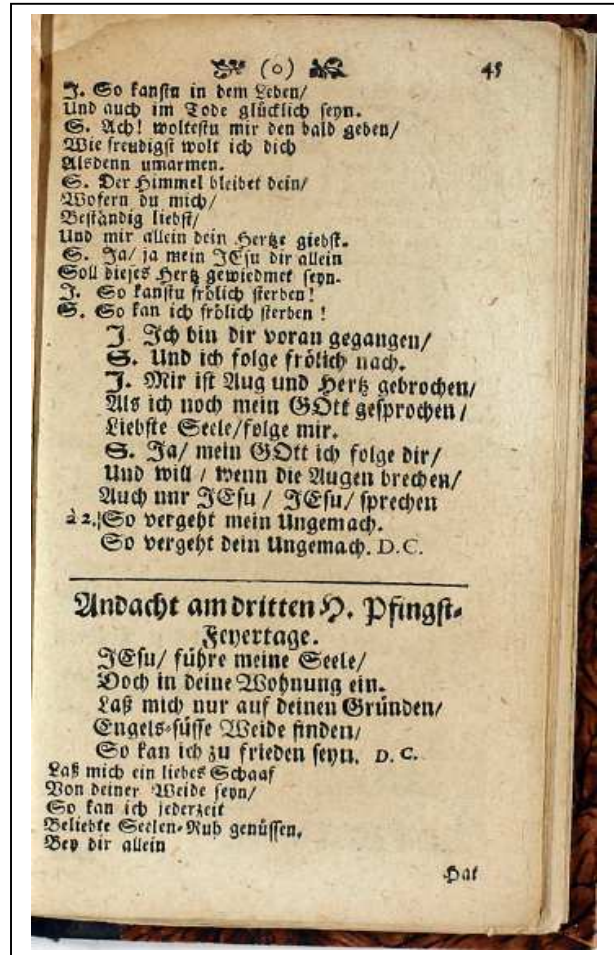 (o) 45
J. So kanstu in dem Leben/
Und auch im Tode glücklich seyn.
S. Ach! woltestu mir den bald geben/
Wie freudigst wolt ich dich
Alsdenn umarmen.
S. Der Himmel bleibet dein/
Wofern du mich/
Beständig liebst/
Und mir allein dein Hertze giebst.
S. Ja/ ja mein JEsu dir allein
Soll dieses Hertz gewiedmet seyn.
J. So kanstu frölich sterben!
S. So kan ich frölich sterben !
J. Ich bin dir voran gegangen/
S. Und ich folge frölich nach.
J. Mir ist Aug und Hertz gebrochen/
Als ich noch mein GOtt gesprochen/
Liebste Seele/folge mir.
S. Ja/ mein GOtt ich folge dir/
Und will / wenn die Augen brechen/
Auch nur JEsu / JEsu/ sprechen
à 2. So vergeht mein Ungemach.
So vergeht dein Ungemach. D.C.
Andacht am dritten H. Pfingst-
Feyertage.
JEsu/ führe meine Seele/
Doch in deine Wohnung ein.
Laß mich nur auf deinen Gründen/
Engels-süsse Weide finden/
So kan ich zu frieden seyn. D. C.
Laß mich ein liebes Schaaf
Von deiner Weide seyn/
So kan ich jederzeit
Beliebte Seelen-Ruh genüssen,
Bey dir allein
Hat